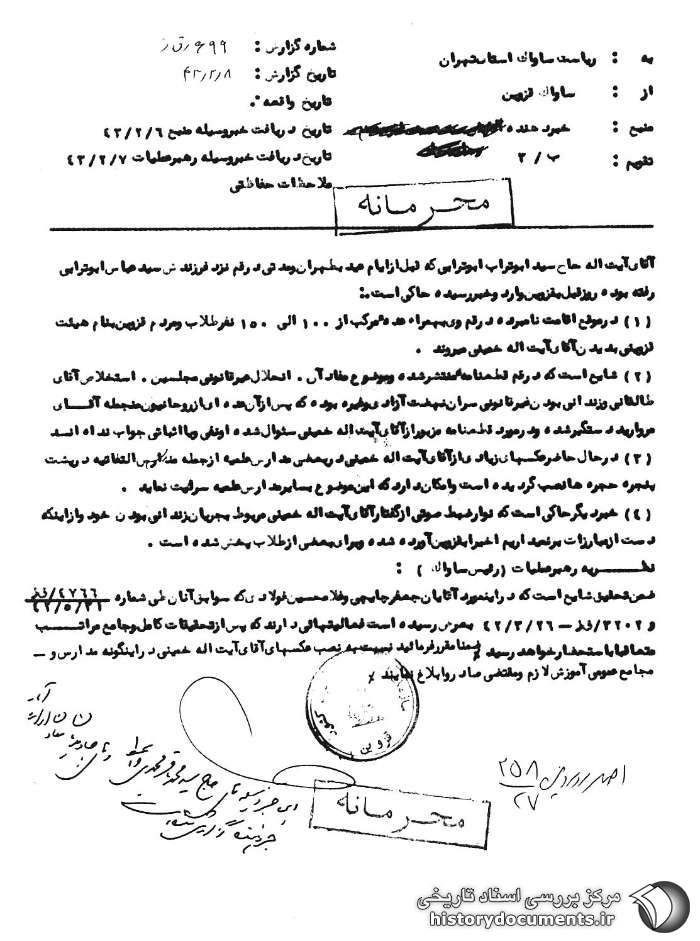 به : ریاست ساواك استان تهران
شماره گزارش : ۶۹۹
از : ساواك قزوین
تاریخ گزارش : ۴۳/۲/۸
تاریخ واقعه
منبع : خبردهنده
تاریخ دریافت خبر وسیله منبع ۴۳/۲/۶
تقویم : ب / ۲
تاریخ دریافت خبر وسیله رهبر عملیات ۴۳/۲/۷
ملاحظات حفاظتی
محرمانه
آقای آیت اله حاج سید ابوتراب ابوترابی که قبل از ایام عید بطهران و مدتی در قم نزد فرزندش سید عباس ابوترابی
رفته بوده روز قبل بقزوین وارد و خبر رسیده حاکی است :
(۱) در موقع اقامت نامبرده در قم وی بهمراه عده مرکب از ۱۰۰ الی ۱۵۰ نفر طلاب و مردم قزوین بنام هیئت
قزوینی بدیدن آقای آیت اله خمینی میروند .
(۲) شایع است که در قم قطعنامه منتشر شده و موضوع مفاد آن . انحلال غیرقانونی مجلسین . استخلاص آقای
طالقانی و زندانی بودن غیرقانونی سران نهضت آزادی و غیره بوده که پس از آن عده ای از روحانیون منجمله آقای
مروارید دستگیر شده و در مورد قطعنامه مزبور از آقای آیت اله خمینی سئوال شده او نفی و یا اثباتی جواب نداده اند
(۳) در حال حاضر عکسهای زیادی از آقای آیت اله خمینی در بعضی مدارس علمیه از جمله مدارس التفاتیه در پشت
پنجره حجره ها نصب گردیده است و امکان دارد که این موضوع بسایر مدارس علمیه سرائیت نماید .
(۴) خبر دیگر حاکی است که نوار ضبط صوتی از گفتار آقای آیت اله خمینی مربوط بجریان زندانی بودن خود و از اینکه
دست از مبارزات برنمیداریم اخیرا بقزوین آورده شده و برای بعضی از طلاب پخش شده است .
نظریه رهبر عملیات (رئیس ساواك) :
ضمن تحقیق شایع است که در اینمورد آقایان جعفر چایچی و غلامحسین فولادی که سوابق آنان طی شماره ۴۷۶۶/قز ۴۲/۵/۳۱
و ۳۲۰۲/قز – ۴۲/۳/۲۶ بعرض رسیده است فعالیتهائی دارند که پس از تحقیقات کامل و جامع مراتب
متعاقبا باستحضار خواهد رسید ضمنا مقرر فرمائید نسبت به نصب عکسهای آقای آیت اله خمینی در اینگونه مدارس و –
مجامع عمومی آموزش لازم و مقتضی صادر و ابلاغ نمایند
قزوین
۲۵۸
۲۷
محرمانه
مرکز بررسی اسناد تاریخی
historydocuments.ir